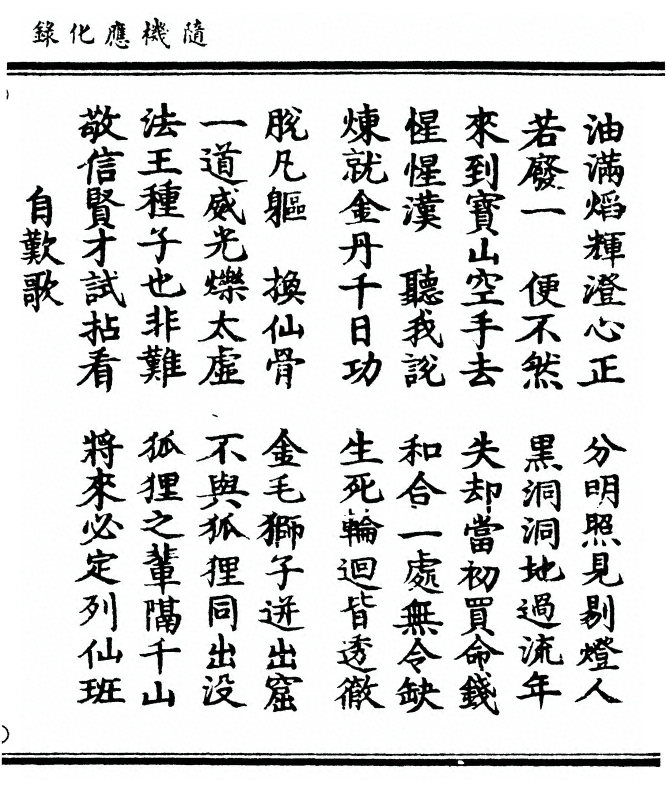 隨機應化錄
油滿焰輝澄心正　分明照見剔燈人
若廢一　便不然　黑洞洞地過流年
來到寶山空手去　失却當初買命錢
惺惺漢　聽我說　和合一處無令缺
煉就金丹千日功　生死輪迴皆透徹
脫凡軀　換仙骨　金毛獅子迸出窟
一道威光爍太虛　不與狐狸同出沒
法王種子也非難　狐狸之輩隔千山
敬信賢才試拈看　將來必定列仙班
自歎歌